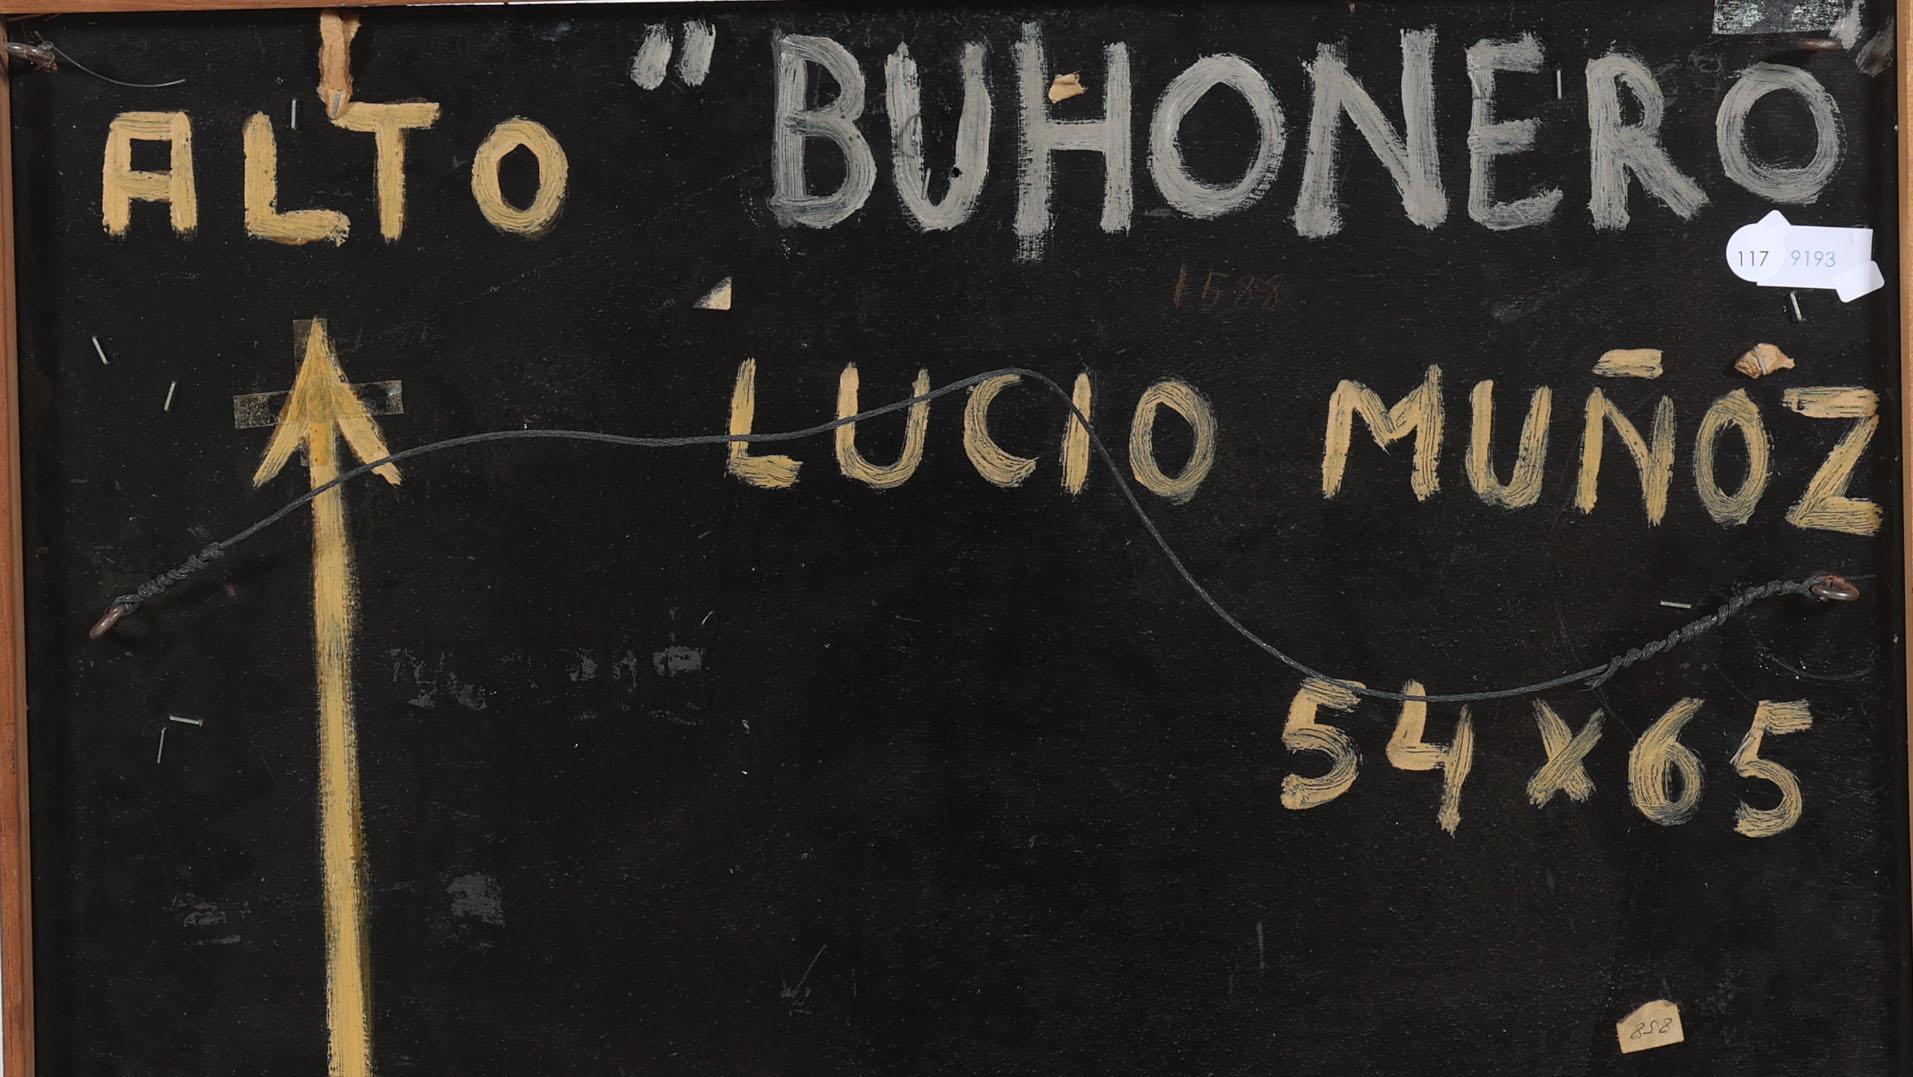 ALTO "BUHONERO"
117 9193
1588
LUCIO MUÑOZ
54x65
858